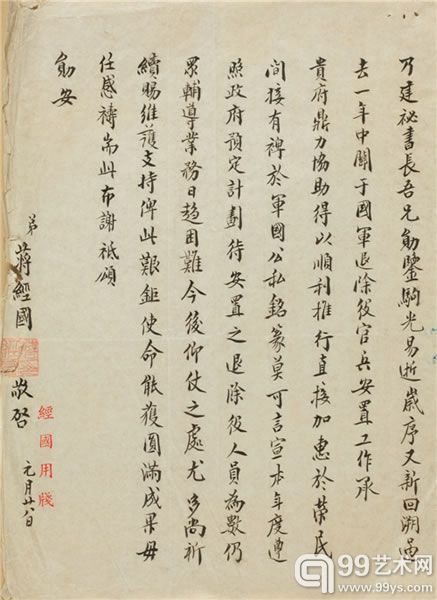 乃建祕書長吾兄勛鑒駒光易逝歲序又新回溯過
去一年中關于國軍退除役官兵安置工作承
貴府鼎力協助得以順利推行直接加惠於榮民
間接有裨於軍國公私銘篆莫可言宣本年度遵
照政府預定計劃待安置之退除役人員為數仍
眾輔導業務日趨困難今後仰仗之處尤多尚祈
續賜維護支持俾此艱鉅使命能獲圓滿成果毋
任感禱耑此布謝祗頌
勛安
弟 蔣經國 敬啓 元月廿八日
經國用牋
99艺术网
www.99ys.com